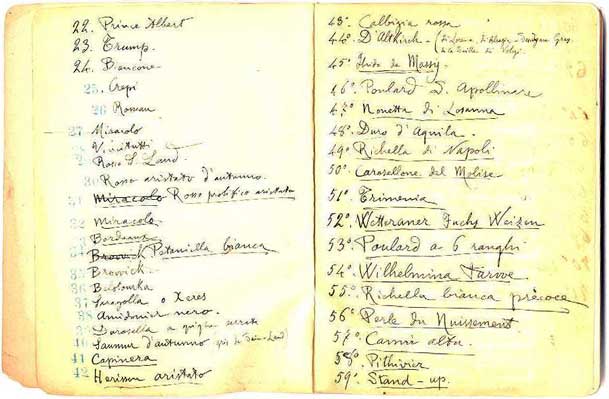 22. Prince Albert
23. Trump.
24. Biancone.
25. Crepi
26 Roman
27 Miracolo
28 Vincitutti
Rosso S. Laud.
30 Rosso aristato d'autunno.
31 Miracolo Rosso prolifico aristato
32 Miracolo
3 Bordeaux
34 Browick Petaniella bianca
35 Browick.
36 Beloturka
37 Saragolla o Xeres
38 Amidonier nero.
39 Carosella a spiga serrata
40 Saumur d'autunno gris de Saint-Laud
41 Capinera
42 Herisson aristato
43° Calbigia rossa
44° D'Altkirch -
45° de Massy.
46° Poulard d'Apollinare
47° Nonetta di Losanna
48° Duro d'Aquila.
49° Richella di Napoli
50° Carosellone del Molise
51° Trimenia
52° Wetteraner Fuchs Weizen
53° Poulard a 6 ranghi
54° Wilhelmina Tarwe.
55° Richella bianca précoce
56° Perle du Nuissement
57° Camri alba.
58° Pithivier
59° Stand-up.